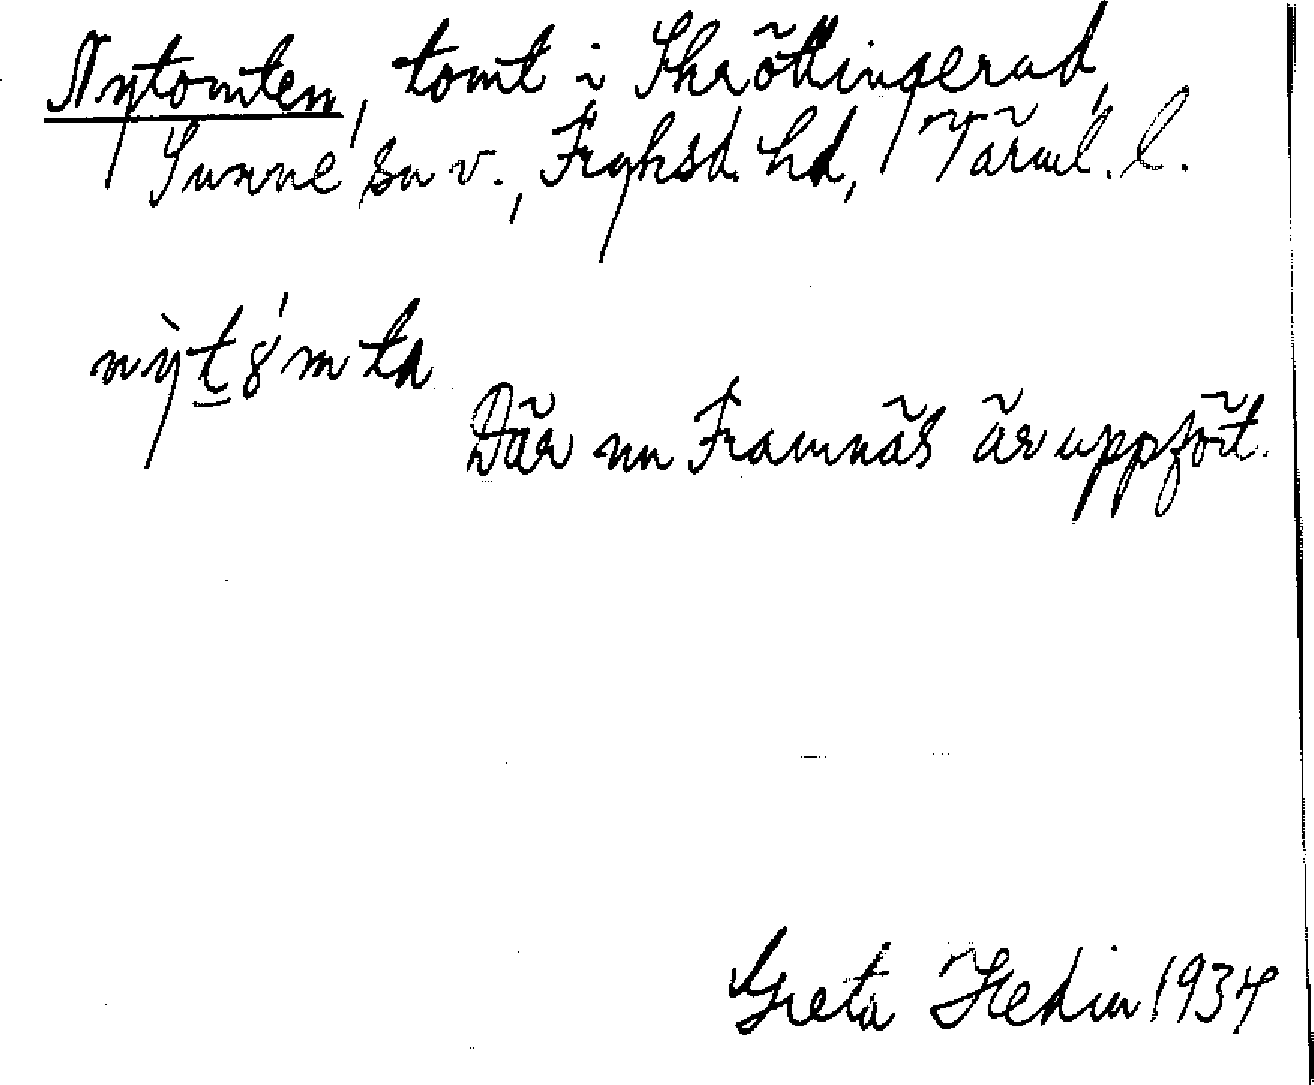 Nytomten, tomt i Skröttingerud,
Sunne sn v., Fryksd. hd, Värml. l.
nỳt8́mta
Där nu Framnäs är uppfört.
Greta Hedin 1934